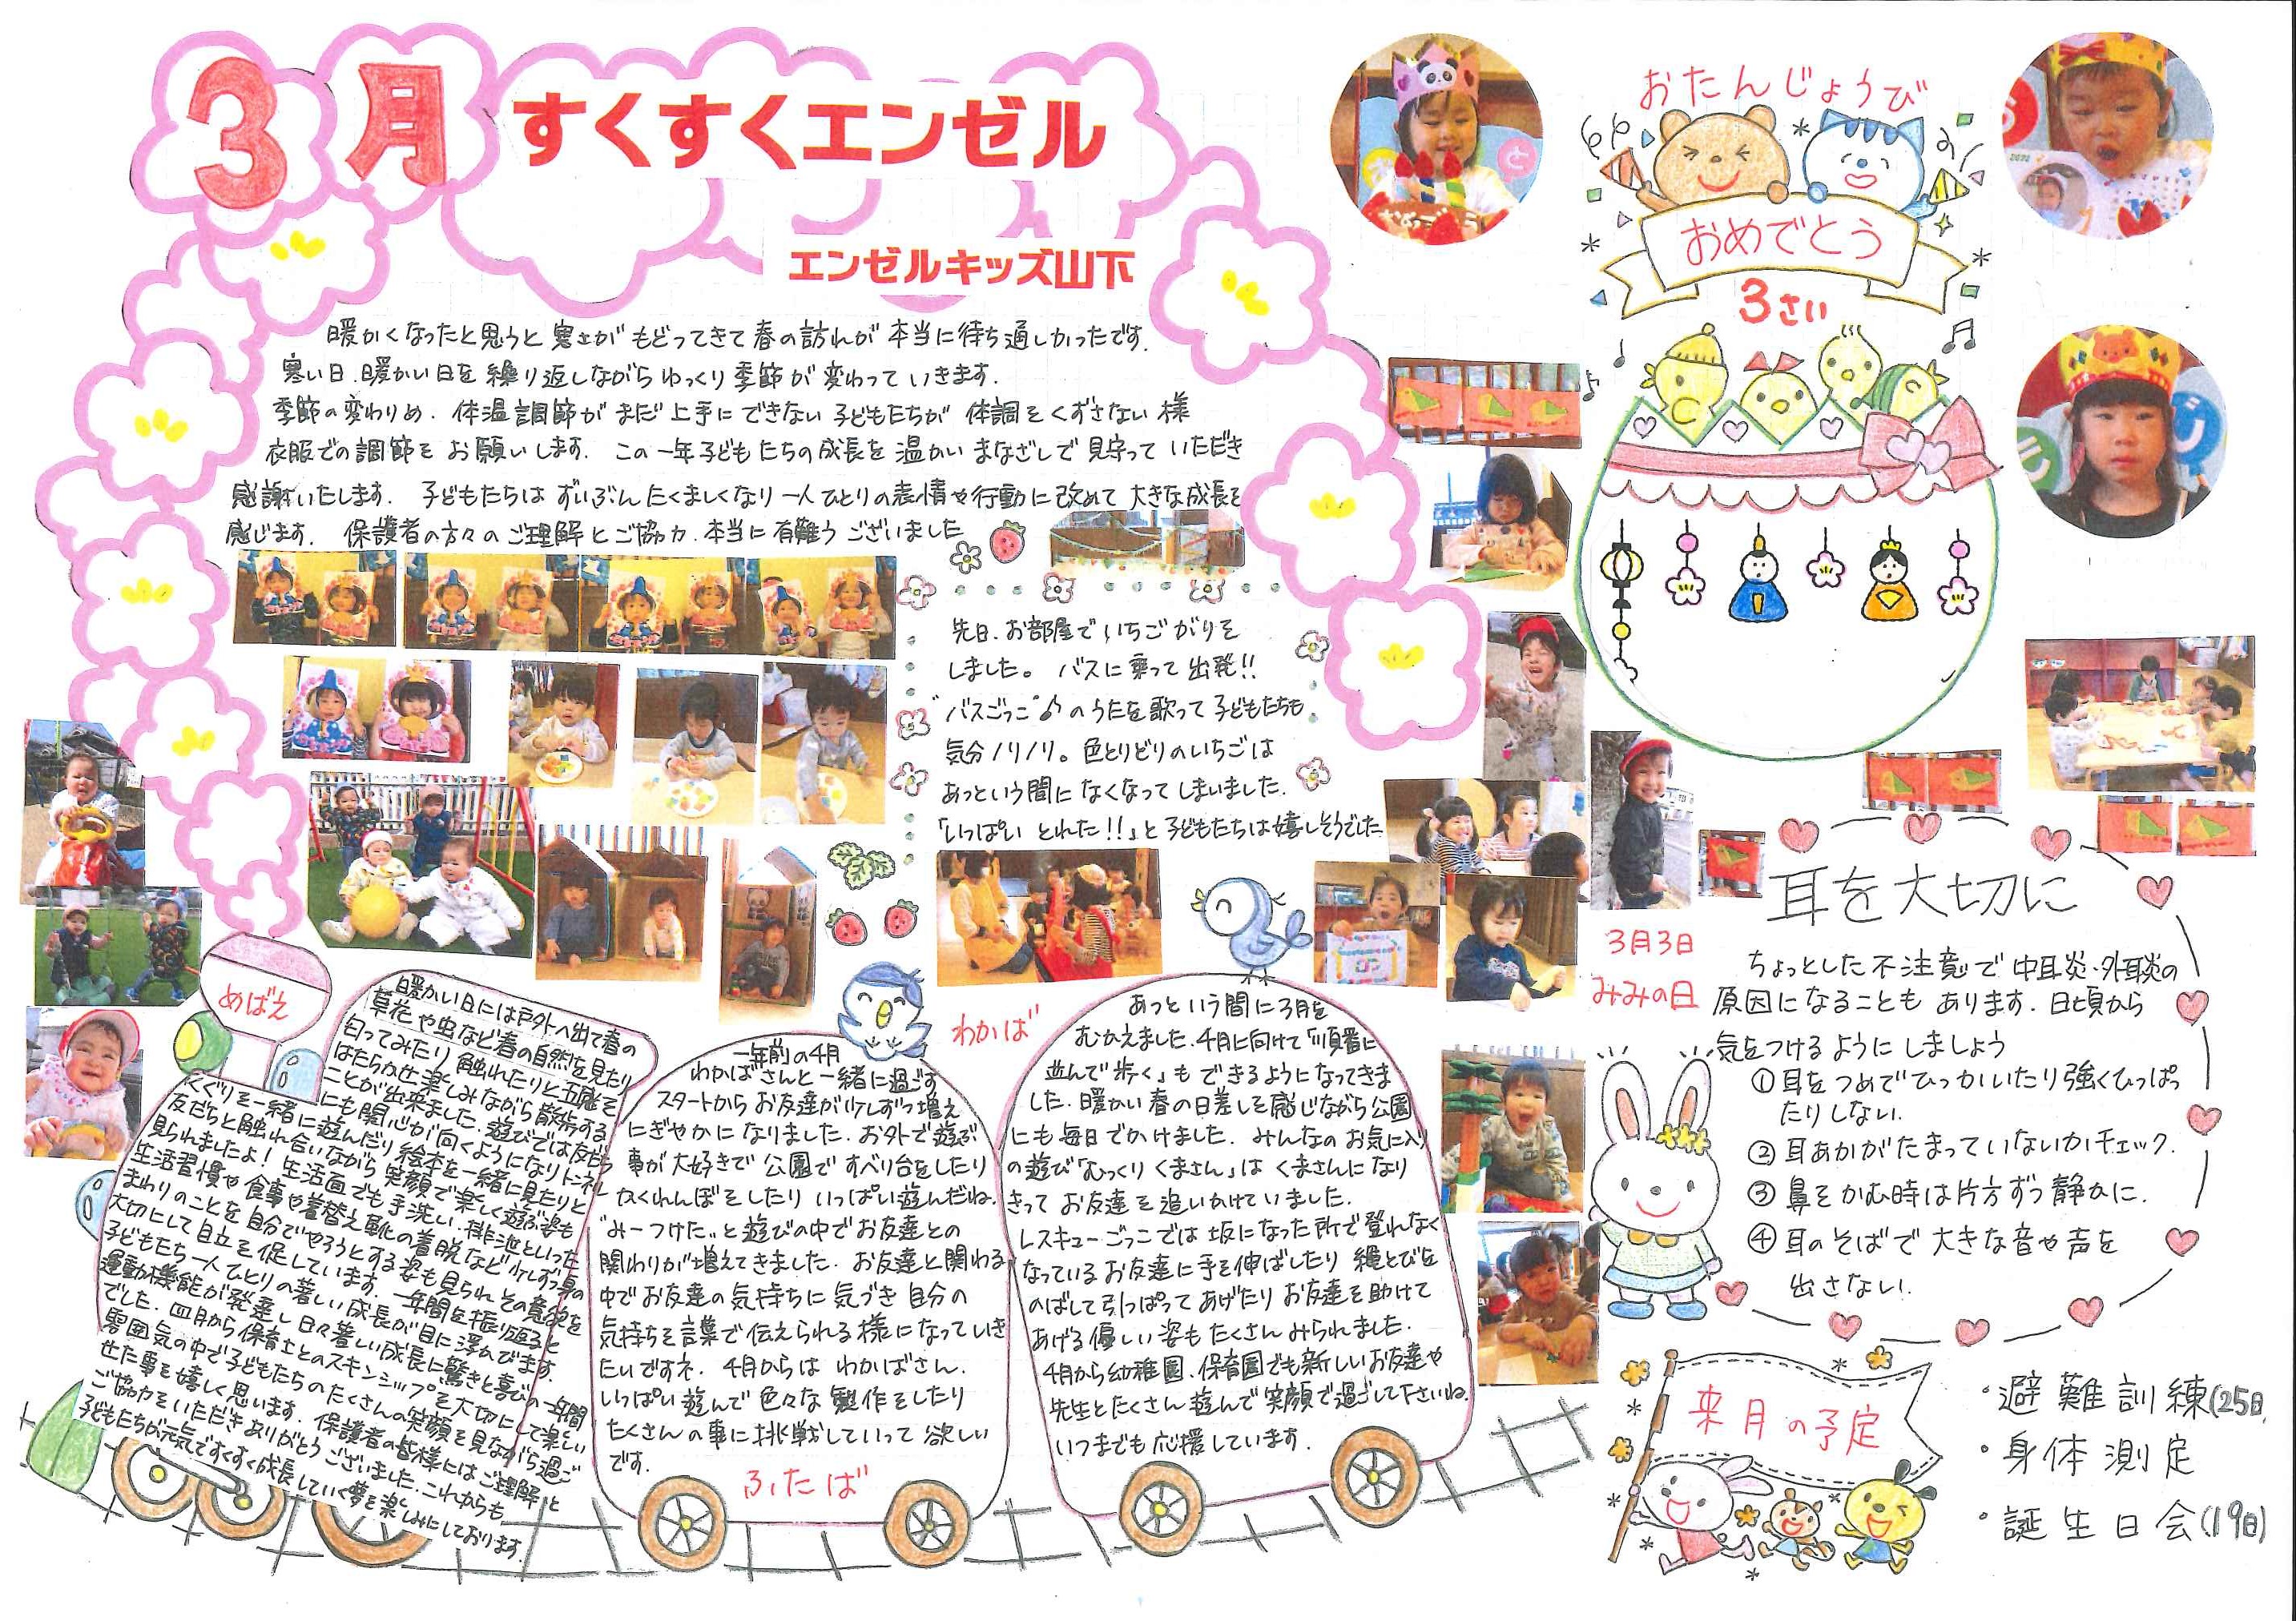 3月
すくすくエンゼル
エンゼルキッズ山下
暖かくなったと思うと寒さがもどってきて春の訪れが本当に待ち遠しかったです。
寒い日、暖かい日を繰り返しながらゆっくり季節が変わっていきます。
季節の変わりめ、体温調節がまだ上手にできない子どもたちが体調をくずさない様
衣服での調節をお願いします。この一年子どもたちの成長を温かいまなざしで見守っていただき
感謝いたします。子どもたちはずいぶんたくましくなり一人ひとりの表情や行動に改めて大きな成長を
感じます。保護者の方々のご理解とご協力、本当に有難うございました
先日、お部屋でいちごがりを
しました。バスに乗って出発!!
"バスごっこ"♪のうたを歌って子どもたちも
気分ノリノリ。色とりどりのいちごは
あっという間になくなってしまいました。
「いっぱいとれた!!」と子どもたちは嬉しそうでした
めばえ
暖かい日には戸外へ出て春の
草花や虫など春の自然を見たり
匂ってみたり触れたりと五感を
はたらかせ楽しみながら散歩する
ことが出来ました。遊びでは友だち
にも関心が向くようになりトンネル
くぐりを一緒に遊んだり絵本を一緒に見たりと
友だちと触れ合いながら笑顔で楽しく遊ぶ姿も
見られましたよ!生活面でも手洗い、排泄といった
生活習慣や食事や着替え靴の着脱など少しずつ身の
まわりのことを自分でやろうとする姿も見られその意欲を
大切にして自立を促しています。一年間を振り返ると
子どもたち一人ひとりの著しい成長が目に浮かびます。
運動機能が発達し日々著しい成長に驚きと喜びの一年間
でした。四月から保育士とのスキンシップを大切にして楽しい
雰囲気の中で子どもたちのたくさんの笑顔を見ながら過ご
せた事を嬉しく思います。保護者の皆様にはご理解と
ご協力をいただきありがとうございました。これからも
子どもたちが元気ですくすく成長していく夢を楽しみにしております。
一年前の4月
わかばさんと一緒に過ごす
スタートからお友達が少しずつ増え
にぎやかになりました。お外で遊ぶ
事が大好きで公園ですべり台をしたり
かくれんぼをしたりいっぱい遊んだね。
"みーつけた"と遊びの中でお友達との
関わりが増えてきました。お友達と関わる
中でお友達の気持ちに気づき自分の
気持ちを言葉で伝えられる様になっていき
たいですネ。4月からはわかばさん。
いっぱい遊んで色々な製作をしたり
たくさんの事に挑戦していって欲しい
です。
ふたば
わかば
あっという間に3月を
むかえました。4月に向けて「順番に
並んで歩く」もできるようになってきま
した。暖かい春の日差しを感じながら公園
にも毎日でかけました。みんなのお気に入り
の遊び「むっくりくまさん」はくまさんになり
きってお友達を追いかけていました。
レスキューごっこでは坂になった所で登れなく
なっているお友達に手を伸ばしたり縄とびを
のばして引っぱってあげたりお友達を助けて
あげる優しい姿もたくさんみられました。
4月から幼稚園、保育園でも新しいお友達や
先生とたくさん遊んで笑顔で過ごして下さいね。
いつまでも応援しています。
おたんじょうび
おめでとう
3さい
3月3日
みみの日
耳を大切に
ちょっとした不注意で中耳炎・外耳炎の
原因になることもあります。日頃から
気をつけるようにしましょう
①耳をつめでひっかいたり強くひっぱっ
たりしない。
②耳あかがたまっていないかチェック。
③鼻をかむ時は片方ずつ静かに。
④耳のそばで大きな音や声を
出さない。
来月の予定
・避難訓練(25日)
・身体測定
・誕生日会(19日)